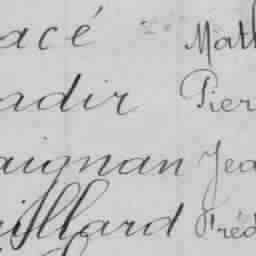 acé Math
adir Pier
aignan Jea
illard Fréd